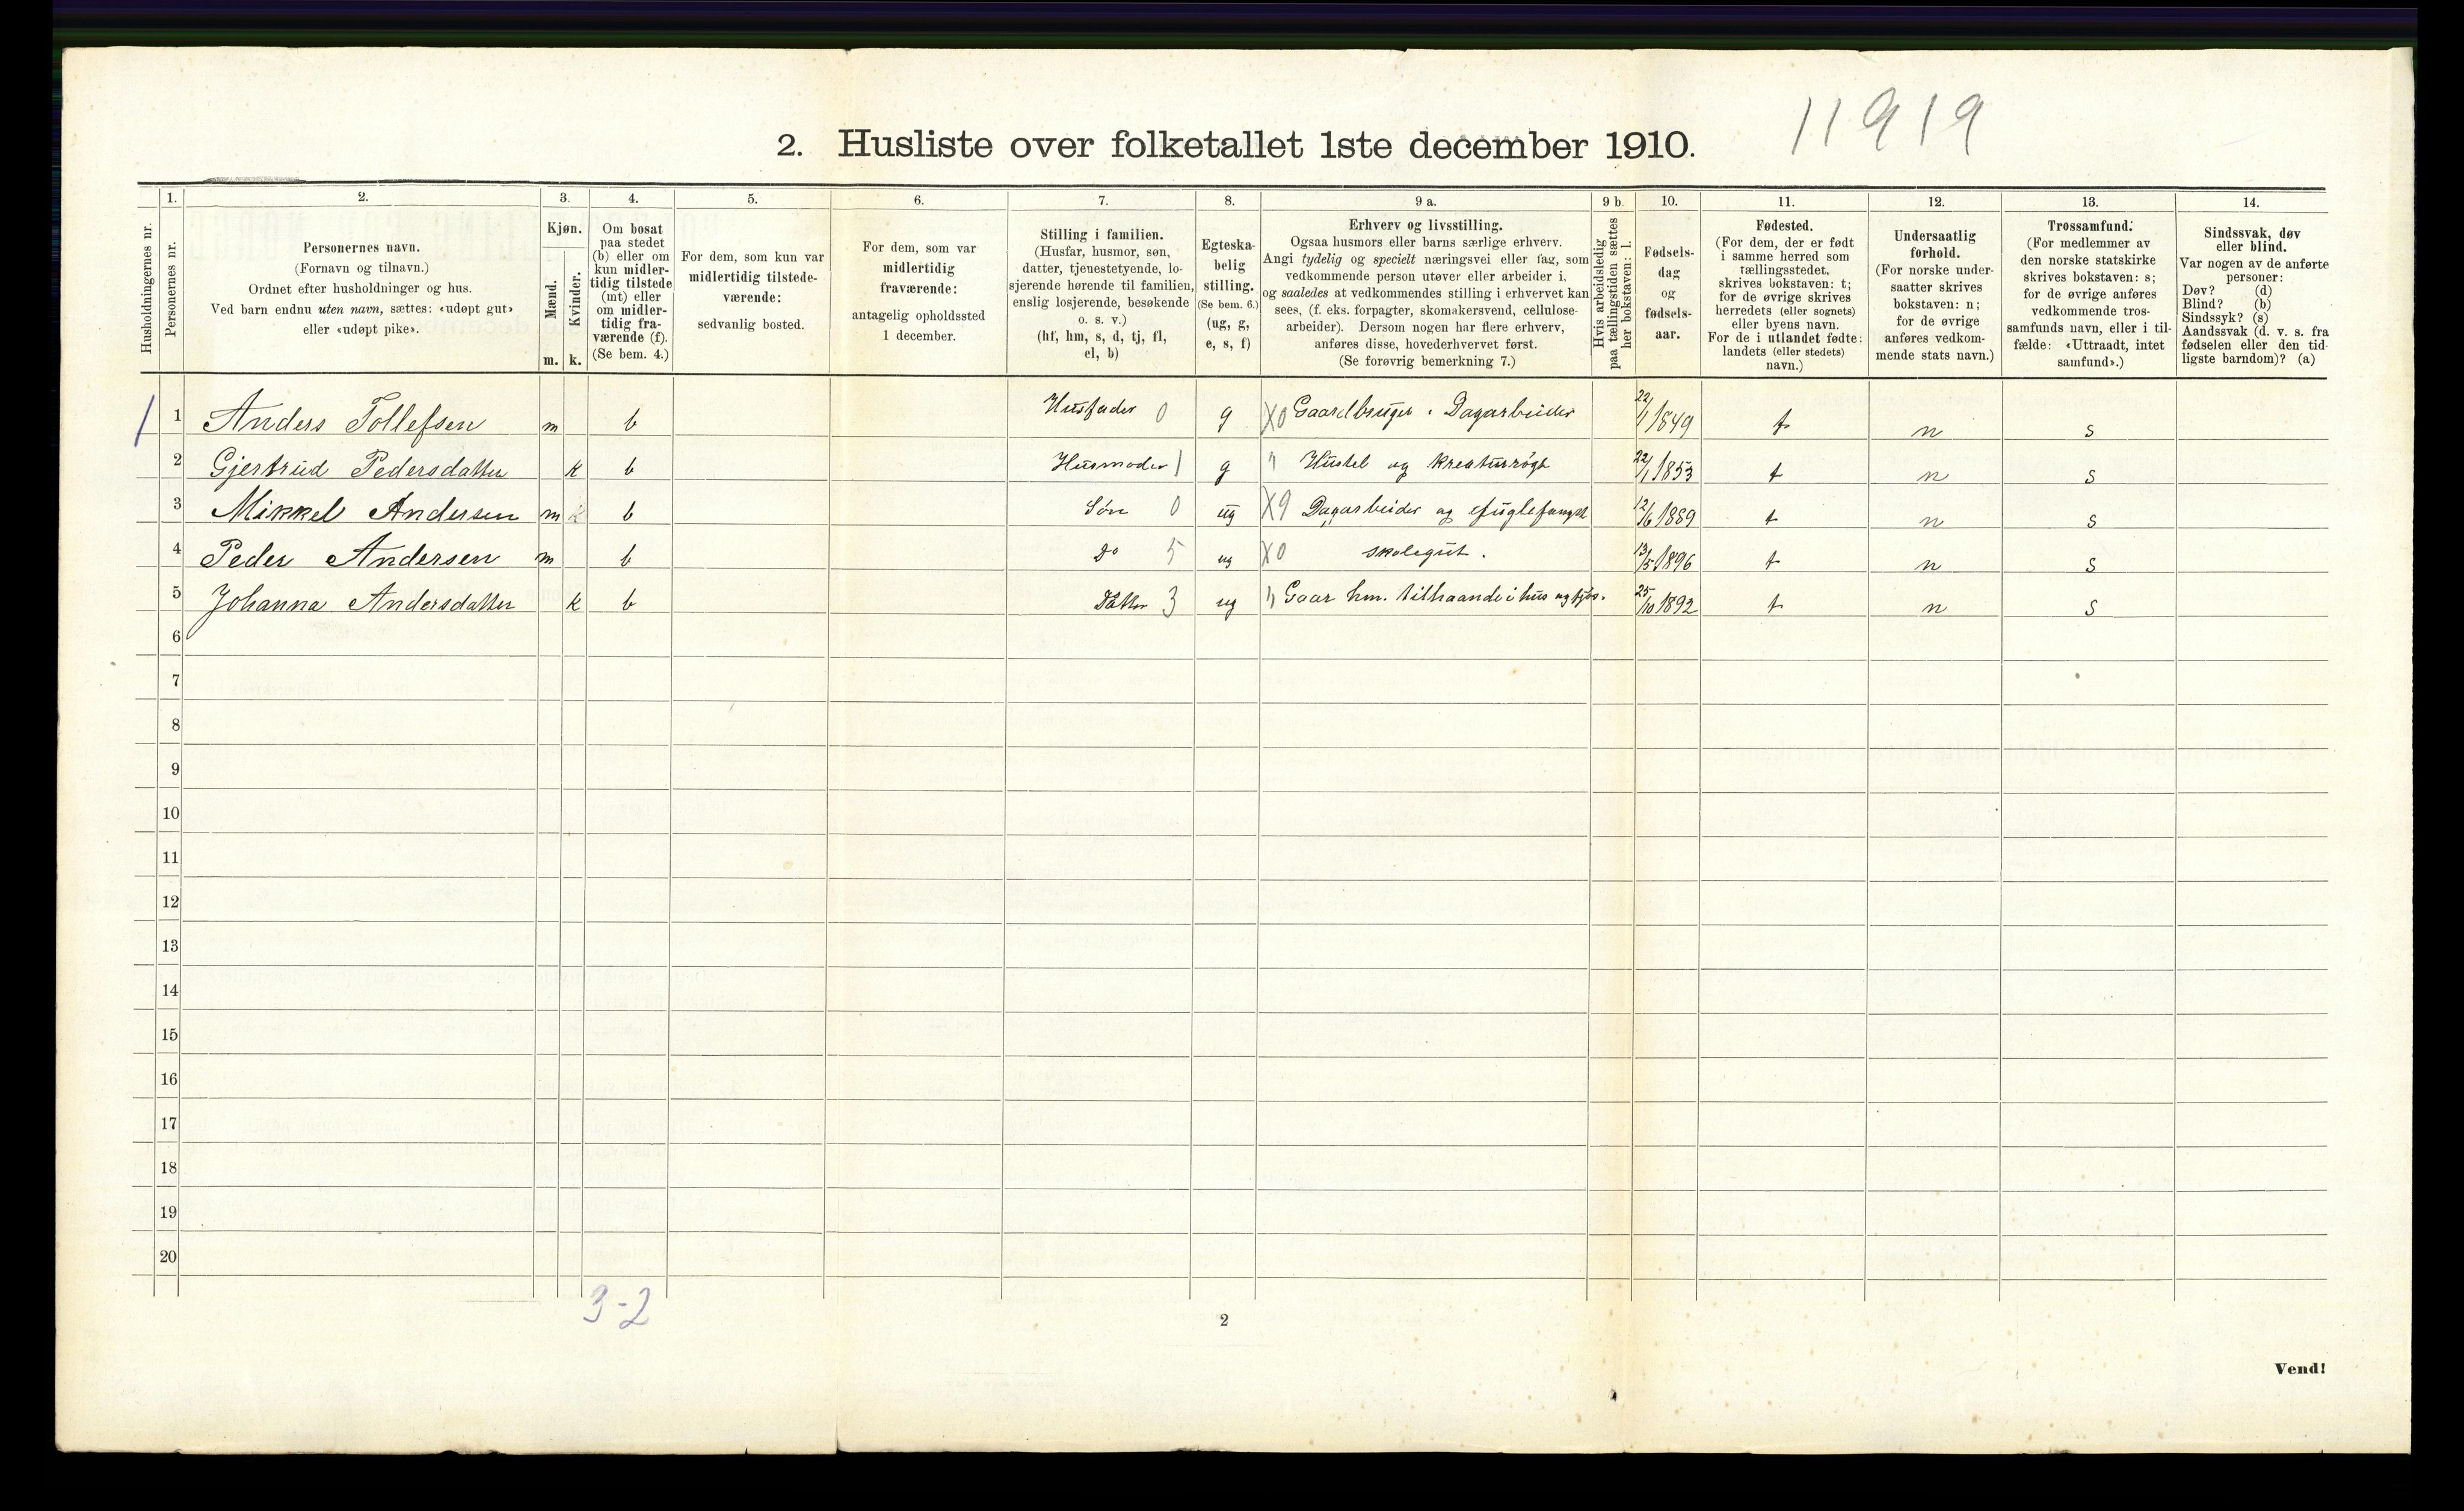 11919
2. Husliste over folketallet 1ste december 1910.
Husholdningernes nr.
1.
Personernes nr.
2.
Personernes navn.
(Fornavn og tilnavn.)
Ordnet efter husholdninger og hus.
Ved barn endnu uten navn, sættes: «udøpt gut»
eller «udøpt pike».
3.
Kjøn.
Mænd.
Kvinder.
m. k.
4.
Om bosat
paa stedet
(b) eller om
kun midler-
tidig tilstede
(mt) eller
om midler-
tidig fra-
værende (f).
(Se bem. 4.)
5.
For dem, som kun var
midlertidig tilstede-
værende:
sedvanlig bosted.
6.
For dem, som var
midlertidig
fraværende:
antagelig opholdssted
1 december.
7.
Stilling i familien.
(Husfar, husmor, søn,
datter, tjenestetyende, lo-
sjerende hørende til familien,
enslig losjerende, besøkende
o. s. v.)
(hf, hm, s, d, tj, fl,
el, b)
8.
Egteska-
belig
stilling.
(Se bem. 6.)
(ug, g,
e, s, f)
9 a.
Erhverv og livsstilling.
Ogsaa husmors eller barns særlige erhverv.
Angi tydelig og specielt næringsvei eller fag, som
vedkommende person utøver eller arbeider i,
og saaledes at vedkommendes stilling i erhvervet kan
sees, (f. eks. forpagter, skomakersvend, cellulose-
arbeider). Dersom nogen har flere erhverv,
anføres disse, hovederhvervet først.
(Se forøvrig bemerkning 7.)
9 b.
Hvis arbeidsledig
paa tællingstiden sættes
her bokstaven: l.
10.
Fødsels-
dag
og
fødsels-
aar.
11.
Fødested.
(For dem, der er født
i samme herred som
tællingsstedet,
skrives bokstaven: t;
for de øvrige skrives
herredets (eller sognets)
eller byens navn.
For de i utlandet fødte:
landets (eller stedets)
navn.)
12.
Undersaatlig
forhold.
(For norske under-
saatter skrives
bokstaven: n;
for de øvrige
anføres vedkom-
mende stats navn.)
13.
Trossamfund.
(For medlemmer av
den norske statskirke
skrives bokstaven: s;
for de øvrige anføres
vedkommende tros-
samfunds navn, eller i til-
fælde: «Uttraadt, intet
samfund».)
14.
Sindssvak, døv
eller blind.
Var nogen av de anførte
personer:
Døv? (d)
Blind? (b)
Sindssyk? (s)
Aandssvak (d. v. s. fra
fødselen eller den tid-
ligste barndom)? (a)
1 1 Anders Tollefsen m b Husfader 0 g X0 Gaardbruger. Dagarbeider 22/1 1849 t n s
2 Gjertrud Pedersdatter k b Husmoder 1 g " Hustel og kreaturrøgt 22/1 1853 t n s
3 Mikkel Andersen m b Søn 0 ug X9 Dagarbeider og fuglefangst 12/6 1889 t n s
4 Peder Andersen m b Do 5 ug X0 skolegut. 13/5 1896 t n s
5 Johanna Andersdatter k b Datter 3 ug " Gaar hm. tilhaande i hus og fjøs. 25/10 1892 t n s
6
7
8
9
10
11
12
13
14
15
16
17
18
19
20
3-2
2
Vend!